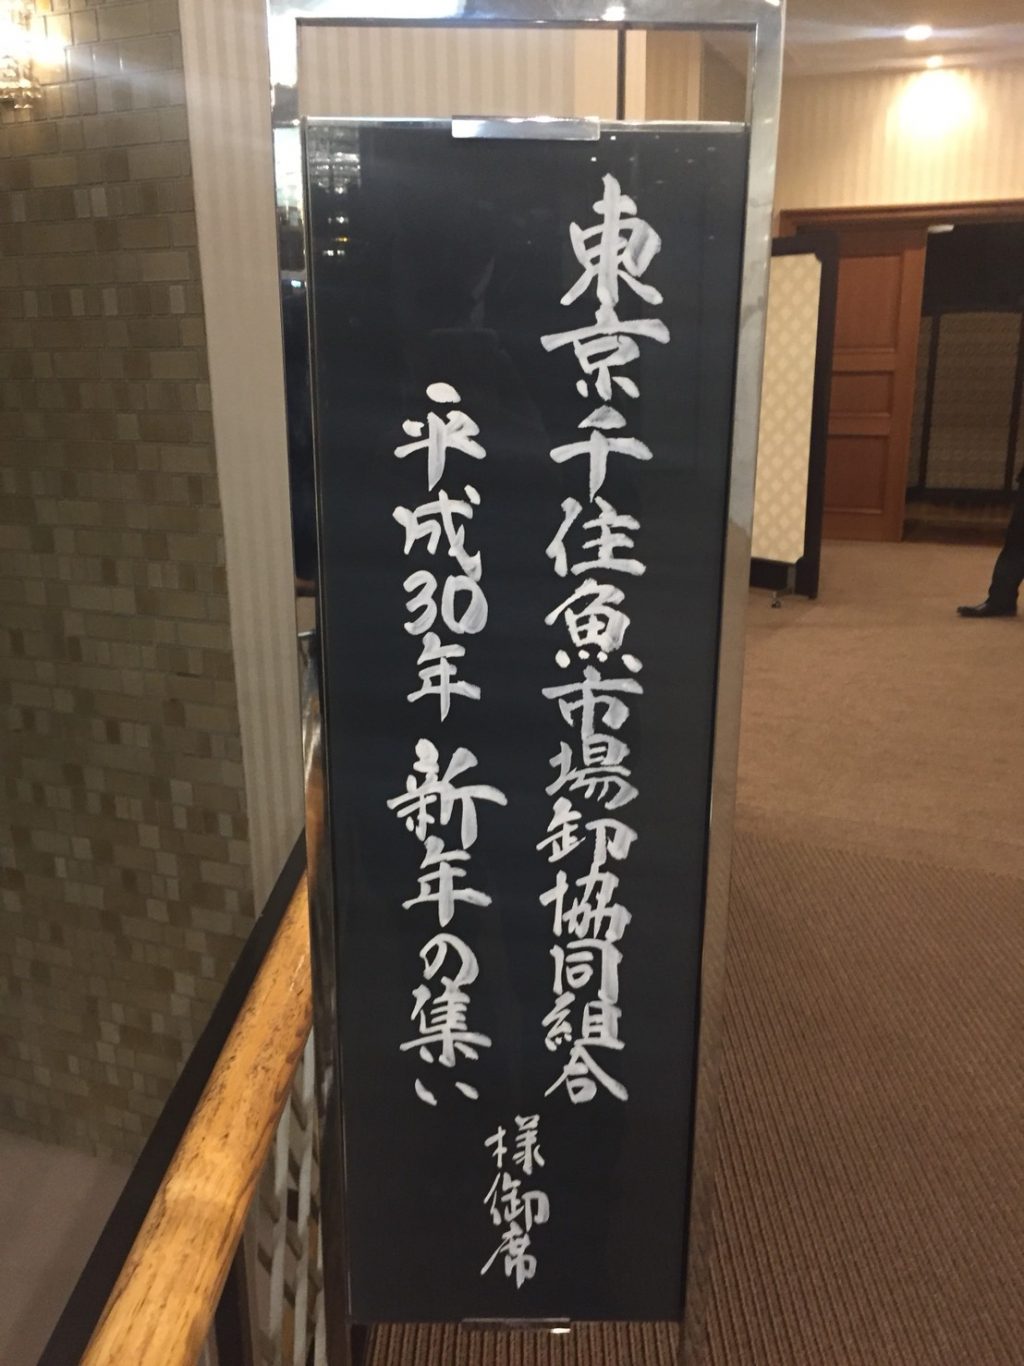 東京千住魚市場卸協同組合
平成30年 新年の集い
様御席